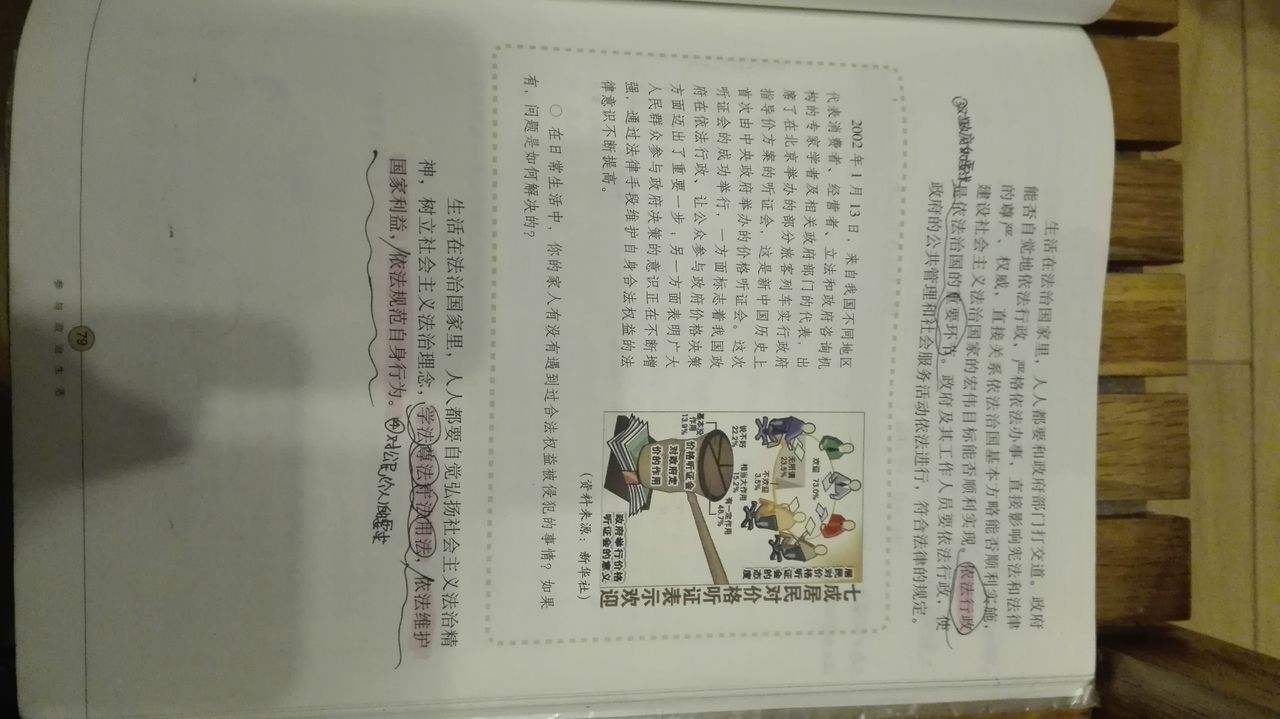 生活在法治国家里，人人都要和政府部门打交道。政府
能否自觉地依法行政，严格依法办事，直接影响宪法和法律
的尊严、权威，直接关系依法治国基本方略能否顺利实施，
建设社会主义法治国家的宏伟目标能否顺利实现。依法行政
是依法治国的重要环节。政府及其工作人员要依法行政，使
政府的公共管理和社会服务活动依法进行，符合法律的规定。
2002年1月13日，来自我国不同地区
代表消费者、经营者、立法和政府咨询机
构的专家学者及相关政府部门的代表，出
席了在北京举办的部分旅客列车实行政府
指导价方案的听证会，这是新中国历史上
首次由中央政府举办的价格听证会。这次
听证会的成功举行，一方面标志着我国政
府在依法行政、让公众参与政府价格决策
方面迈出了重要一步，另一方面表明广大
人民群众参与政府决策的意识正在不断增
强，通过法律手段维护自身合法权益的法
律意识不断提高。
七成居民对价格听证表示欢迎
居民对价格听证会的态度
欢迎 73.0%
无所谓
23.5%
不欢迎
3.5%
政府举行价格
听证会的意义
价格听证会
对政府定
价的作用
有一定作用
48.7%
相当大作用
15.2%
说不好
22.2%
作用
13.9%
（资料来源：新华社）
○ 在日常生活中，你的家人有没有遇到过合法权益被侵犯的事情？如果
有，问题是如何解决的？
生活在法治国家里，人人都要自觉弘扬社会主义法治精
神，树立社会主义法治理念，学法尊法守法用法，依法维护
国家利益，依法规范自身行为。④对公民个人的要求
参与政治生活
79